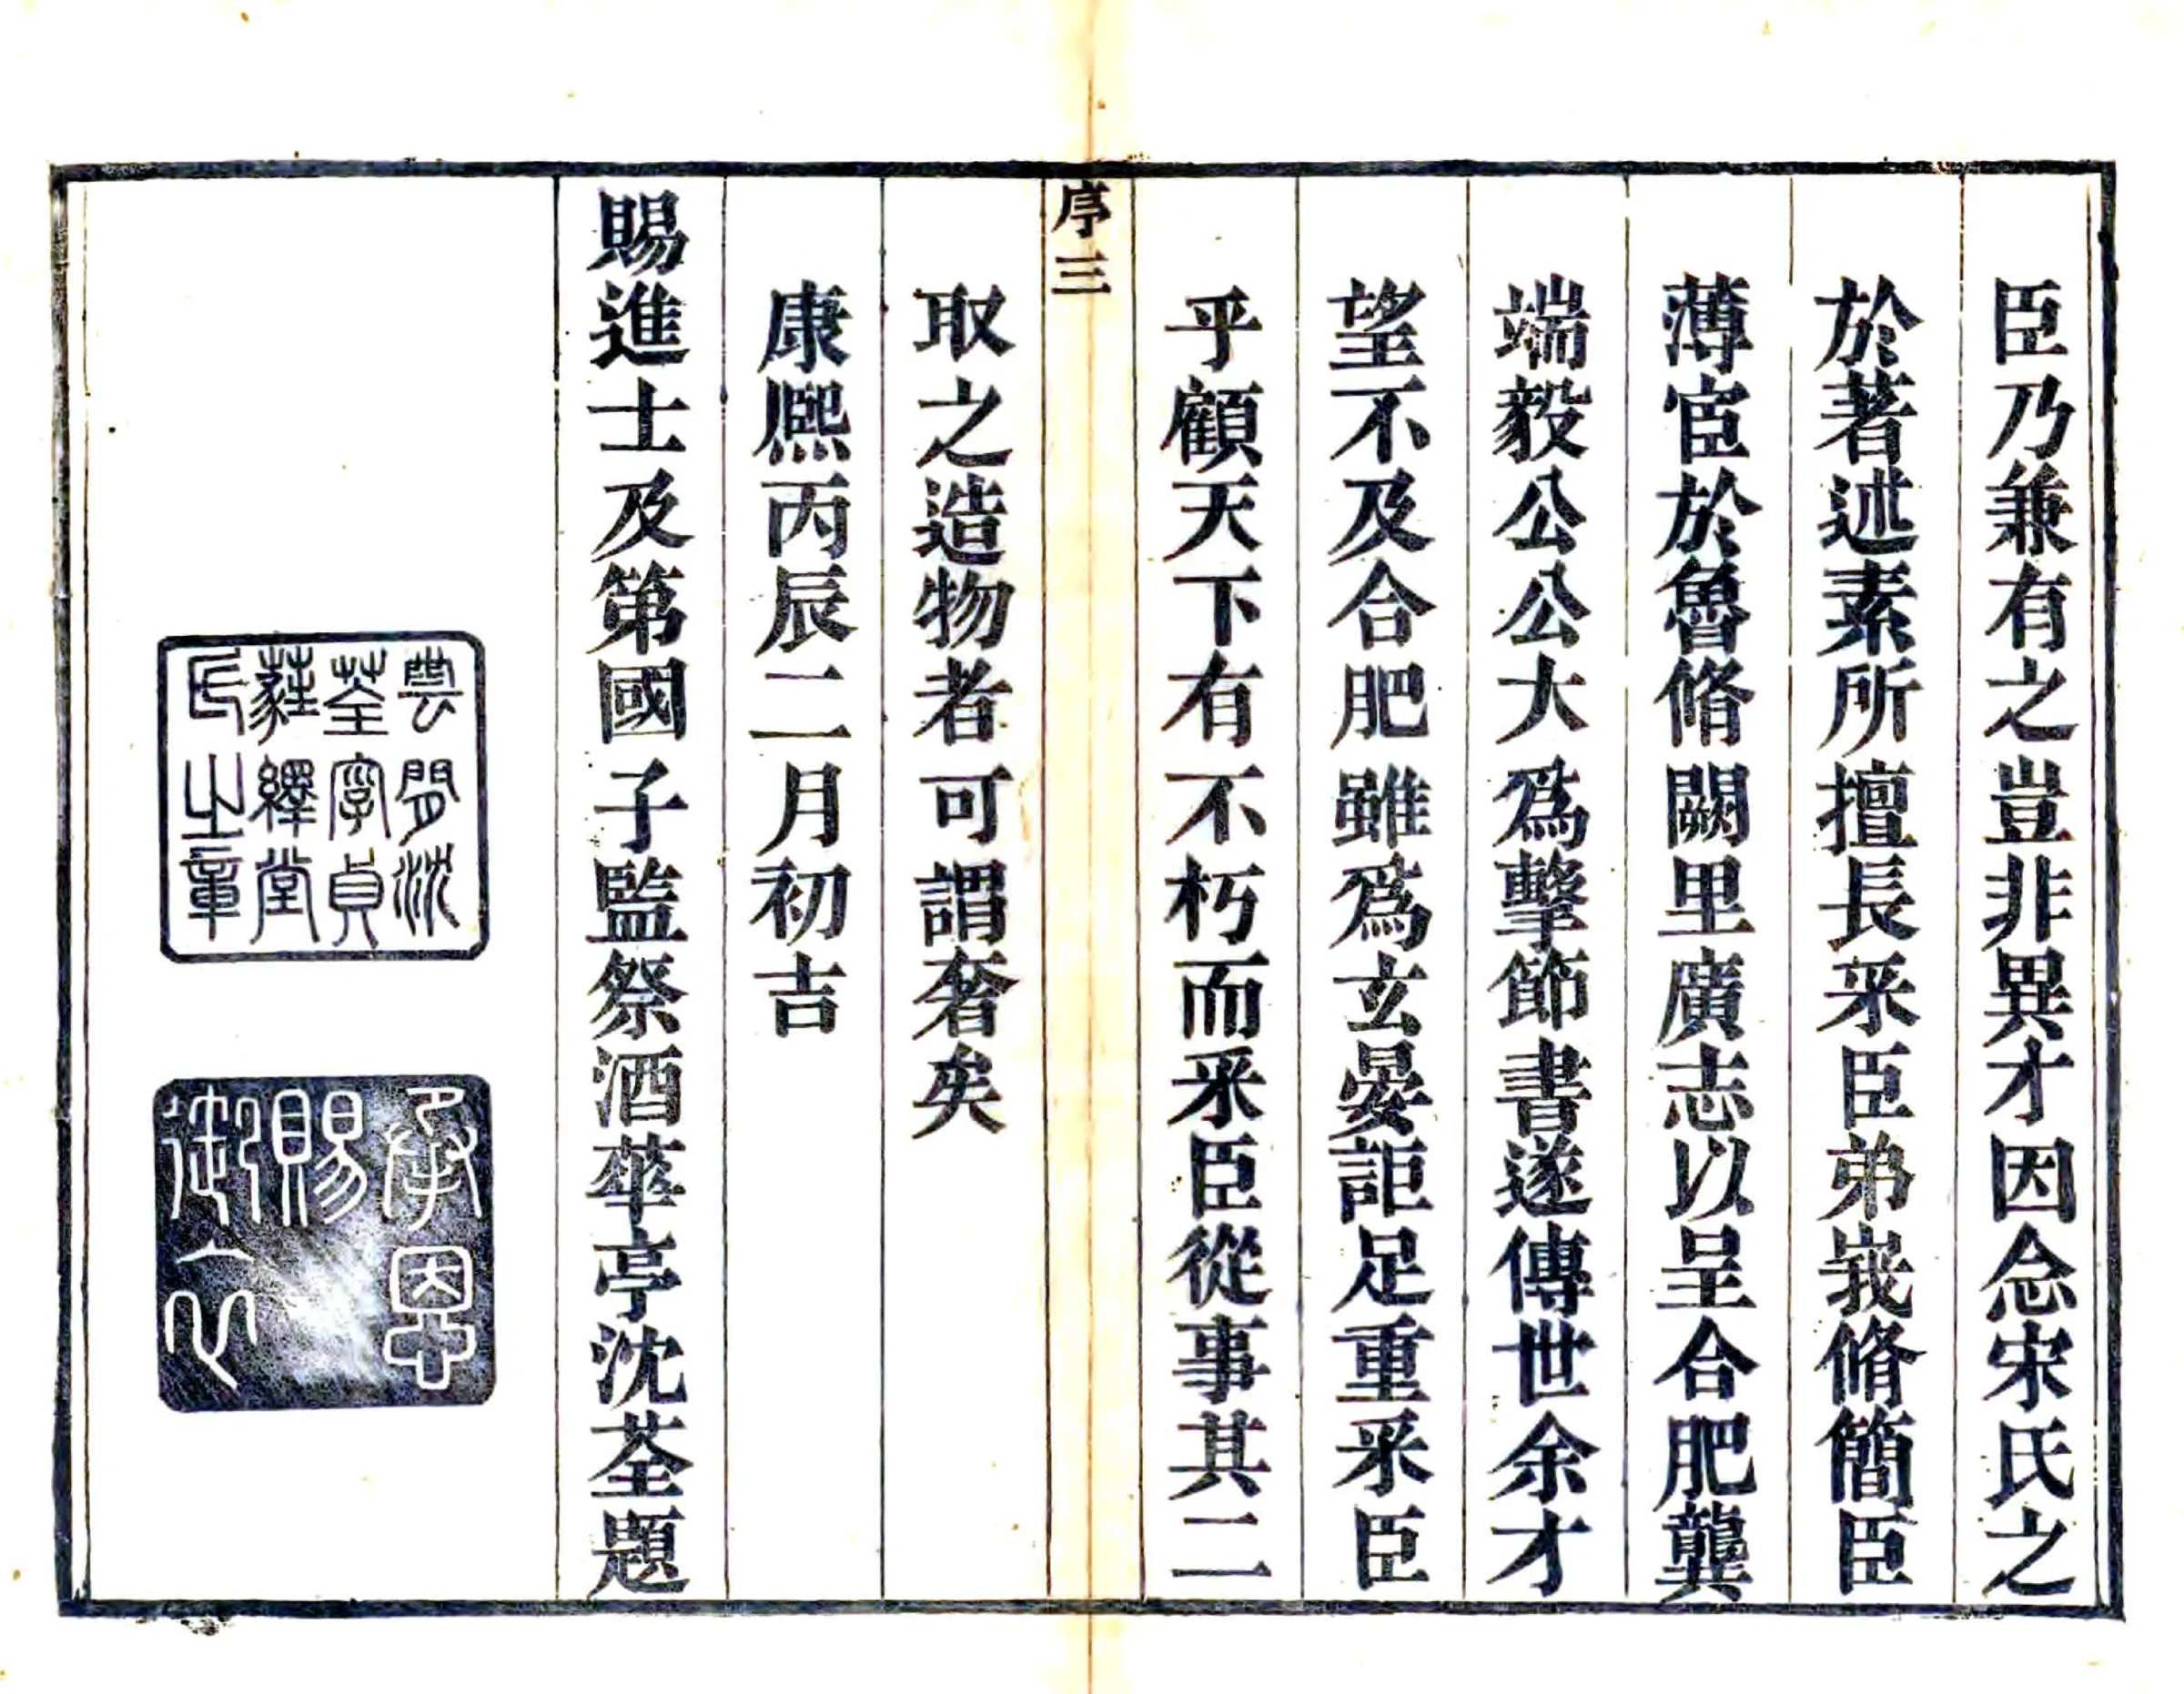 臣乃兼有之豈非異才因念宋氏之
於著述素所擅長釆臣弟峩脩簡臣
薄宦於魯脩闕里廣志以呈合肥龔
端毅公公大爲擊節書遂傳世余才
望不及合肥雖爲玄晏詎足重釆臣
乎顧天下有不朽而釆臣從事其二
序三
取之造物者可謂奢矣
康熙丙辰二月初吉
賜進士及第國子監祭酒華亭沈荃題
雲間沈
荃字貞
蕤繹堂
氏之章
承恩
賜
御衣